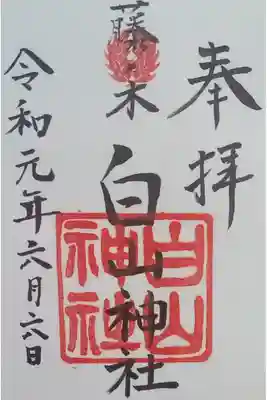 奉拝
藤之木
白山神社
令和元年六月六日
白山
神社